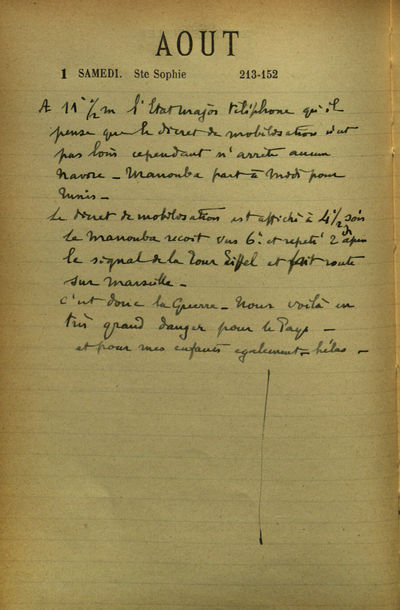 AOUT
1 SAMEDI. Ste Sophie 213-152
A 11 h 1/2 m l'Etat Major téléphone qu'il
pense que le décret de mobilisation n'est
pas loin cependant n'arrête aucun
navire - Manouba part à midi pour
Tunis -
Le décret de mobilisation est affiché à 4h 1/2 soir
le Manouba reçoit vers 6h et répété 2
le signal de la Tour Eiffel et fait route
sur Marseille -
C'est donc la Guerre - Nous voilà en
très grand danger pour le Pays -
et pour mes enfants également - hélas -